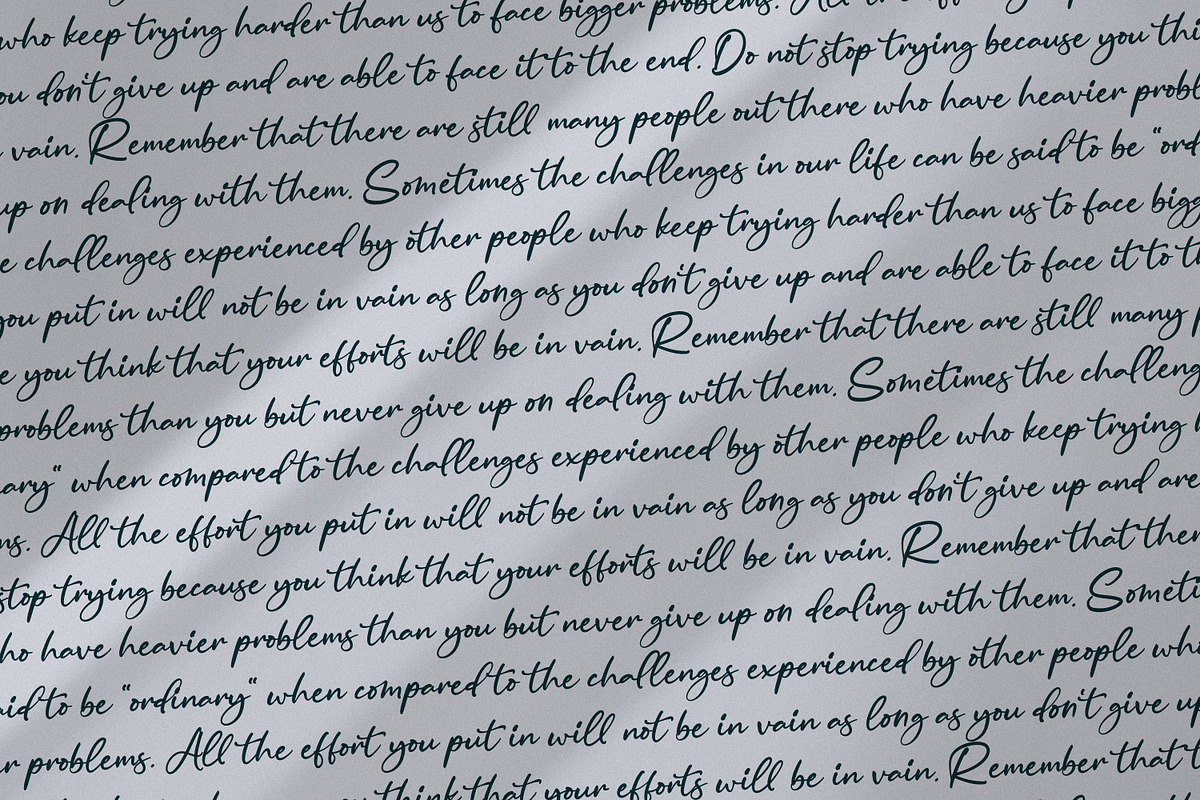 who keep trying harder than us to face bigger problems. All the
you don't give up and are able to face it to the end. Do not stop trying because you
vain. Remember that there are still many people out there who have heavier
up on dealing with them. Sometimes the challenges in our life can be said to be "
challenges experienced by other people who keep trying harder than us to face
you put in will not be in vain as long as you don't give up and are able to face it to
you think that your efforts will be in vain. Remember that there are still many
problems than you but never give up on dealing with them. Sometimes the
ary" when compared to the challenges experienced by other people who keep trying
ms. All the effort you put in will not be in vain as long as you don't give up and are
stop trying because you think that your efforts will be in vain. Remember that
who have heavier problems than you but never give up on dealing with them.
said to be "ordinary" when compared to the challenges experienced by other people
problems. All the effort you put in will not be in vain as long as you don't give up
think that your efforts will be in vain. Remember that